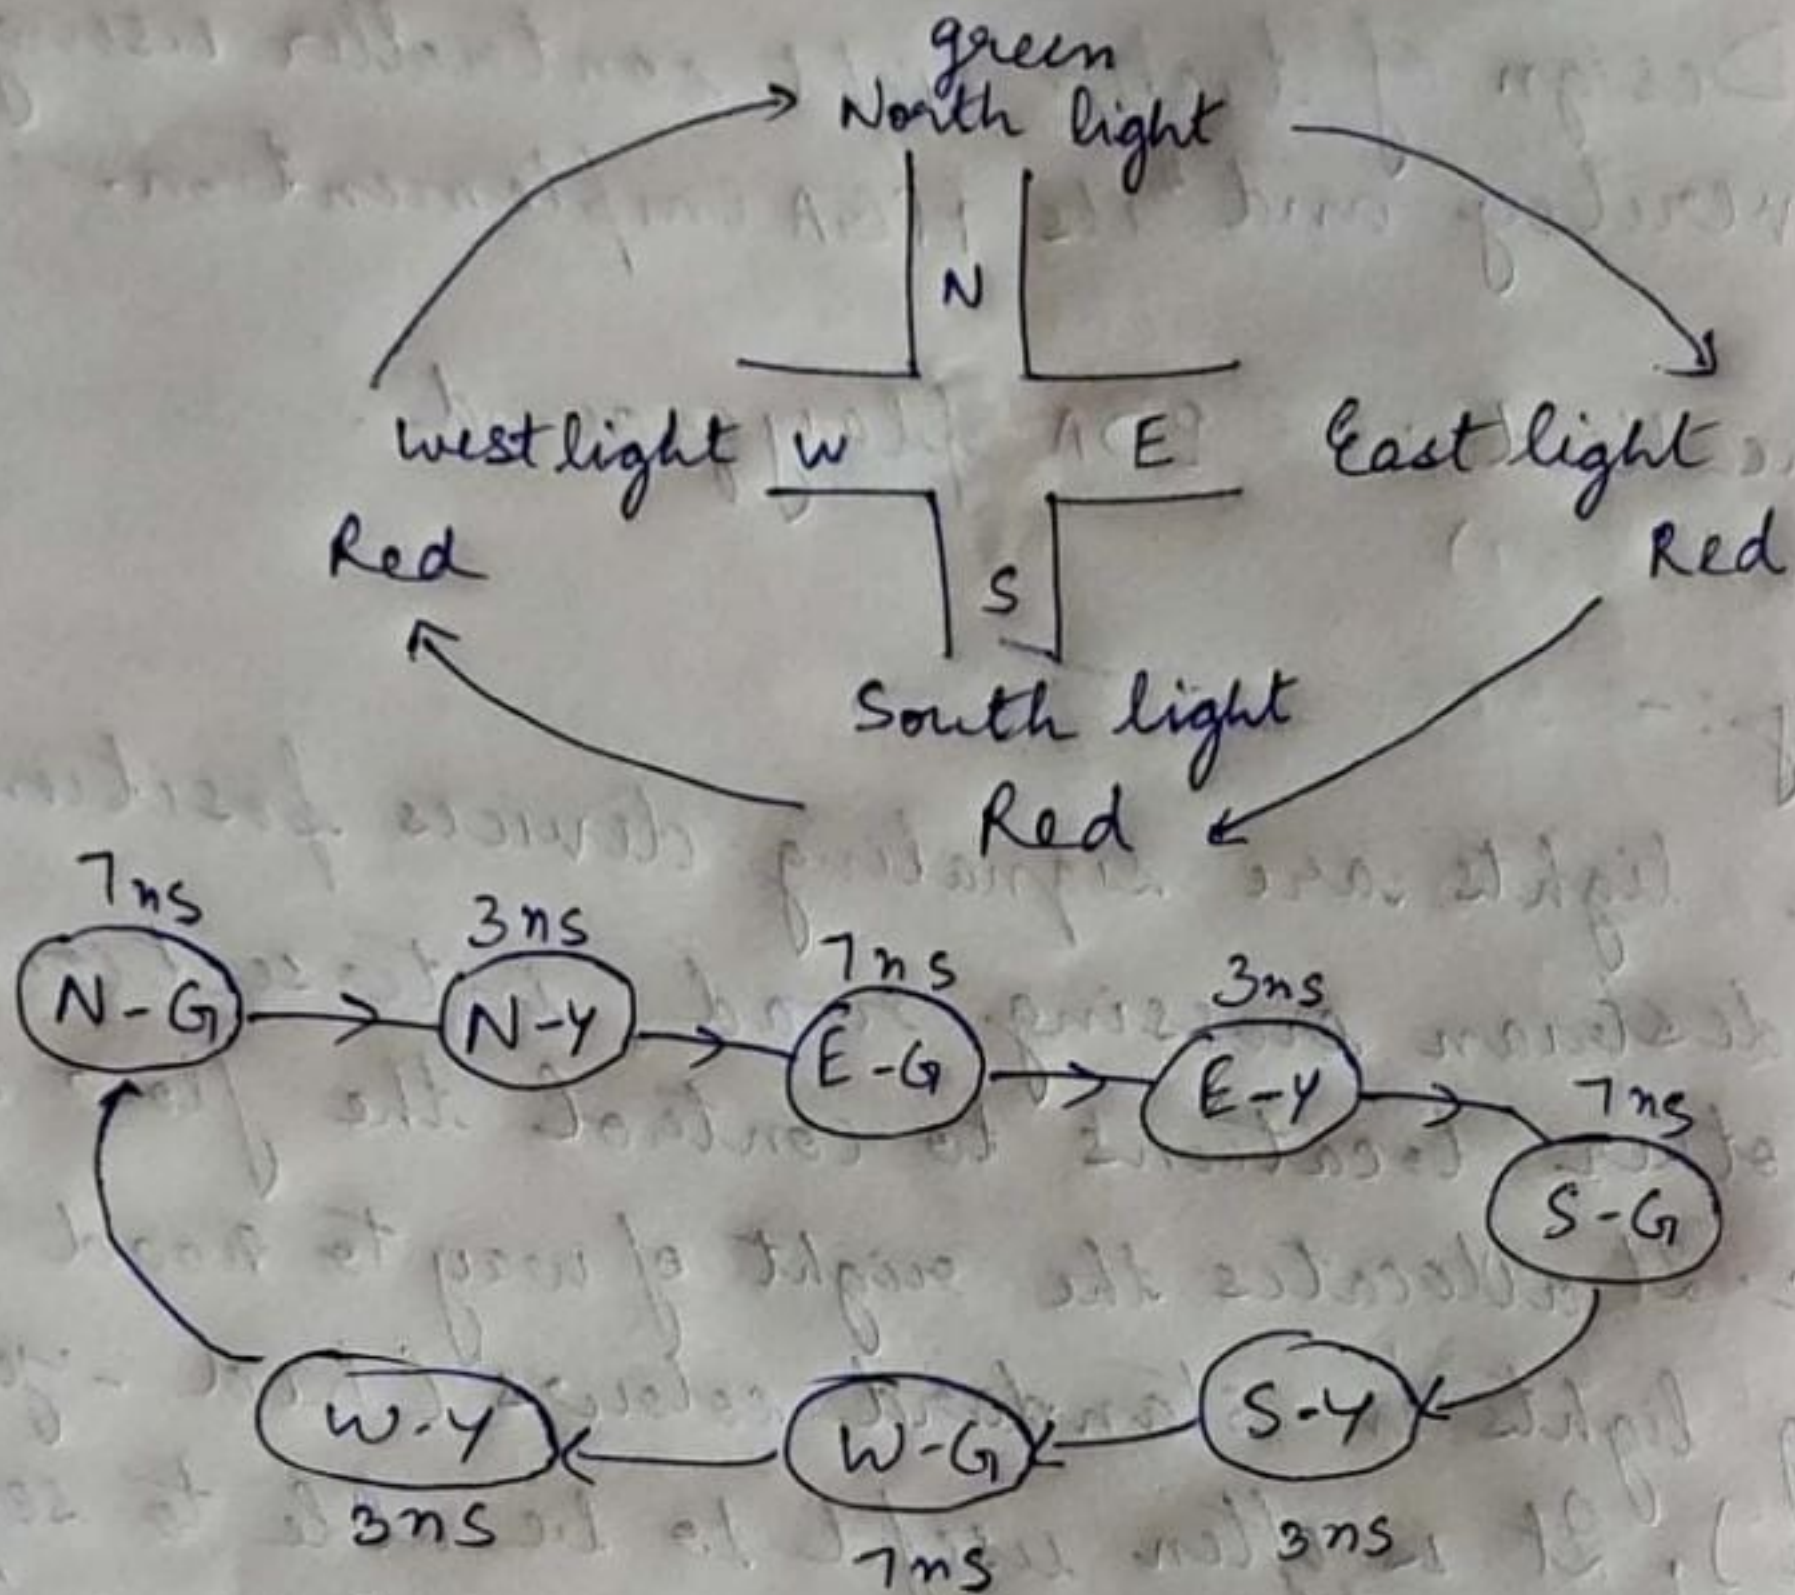 green
North light
N
West light W E East light
Red Red
S
South light
Red
7ns 3ns 7ns 3ns
N-G N-Y E-G E-Y
7ns
S-G
W-Y W-G S-Y
3ns 7ns 3ns